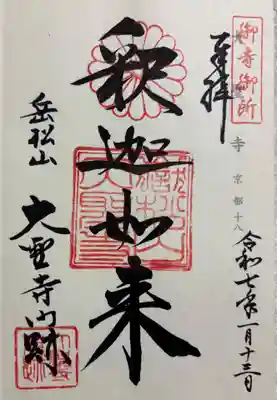 御寺御所
奉拝
寺 京都十八
令和七年一月十三日
釈迦如来
岳松山
大聖寺門跡